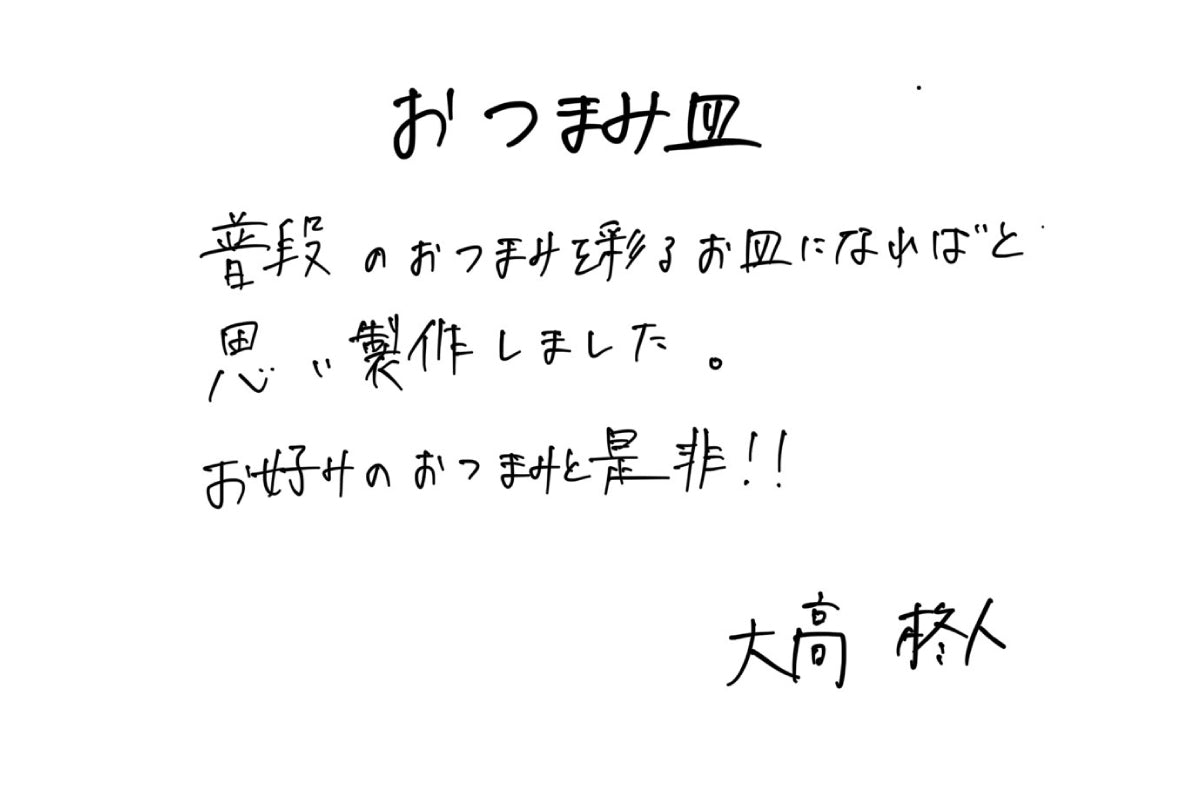 おつまみ皿
普段のおつまみを彩るお皿になればと
思い製作しました。
お好みのおつまみと是非!!
大高 柊人